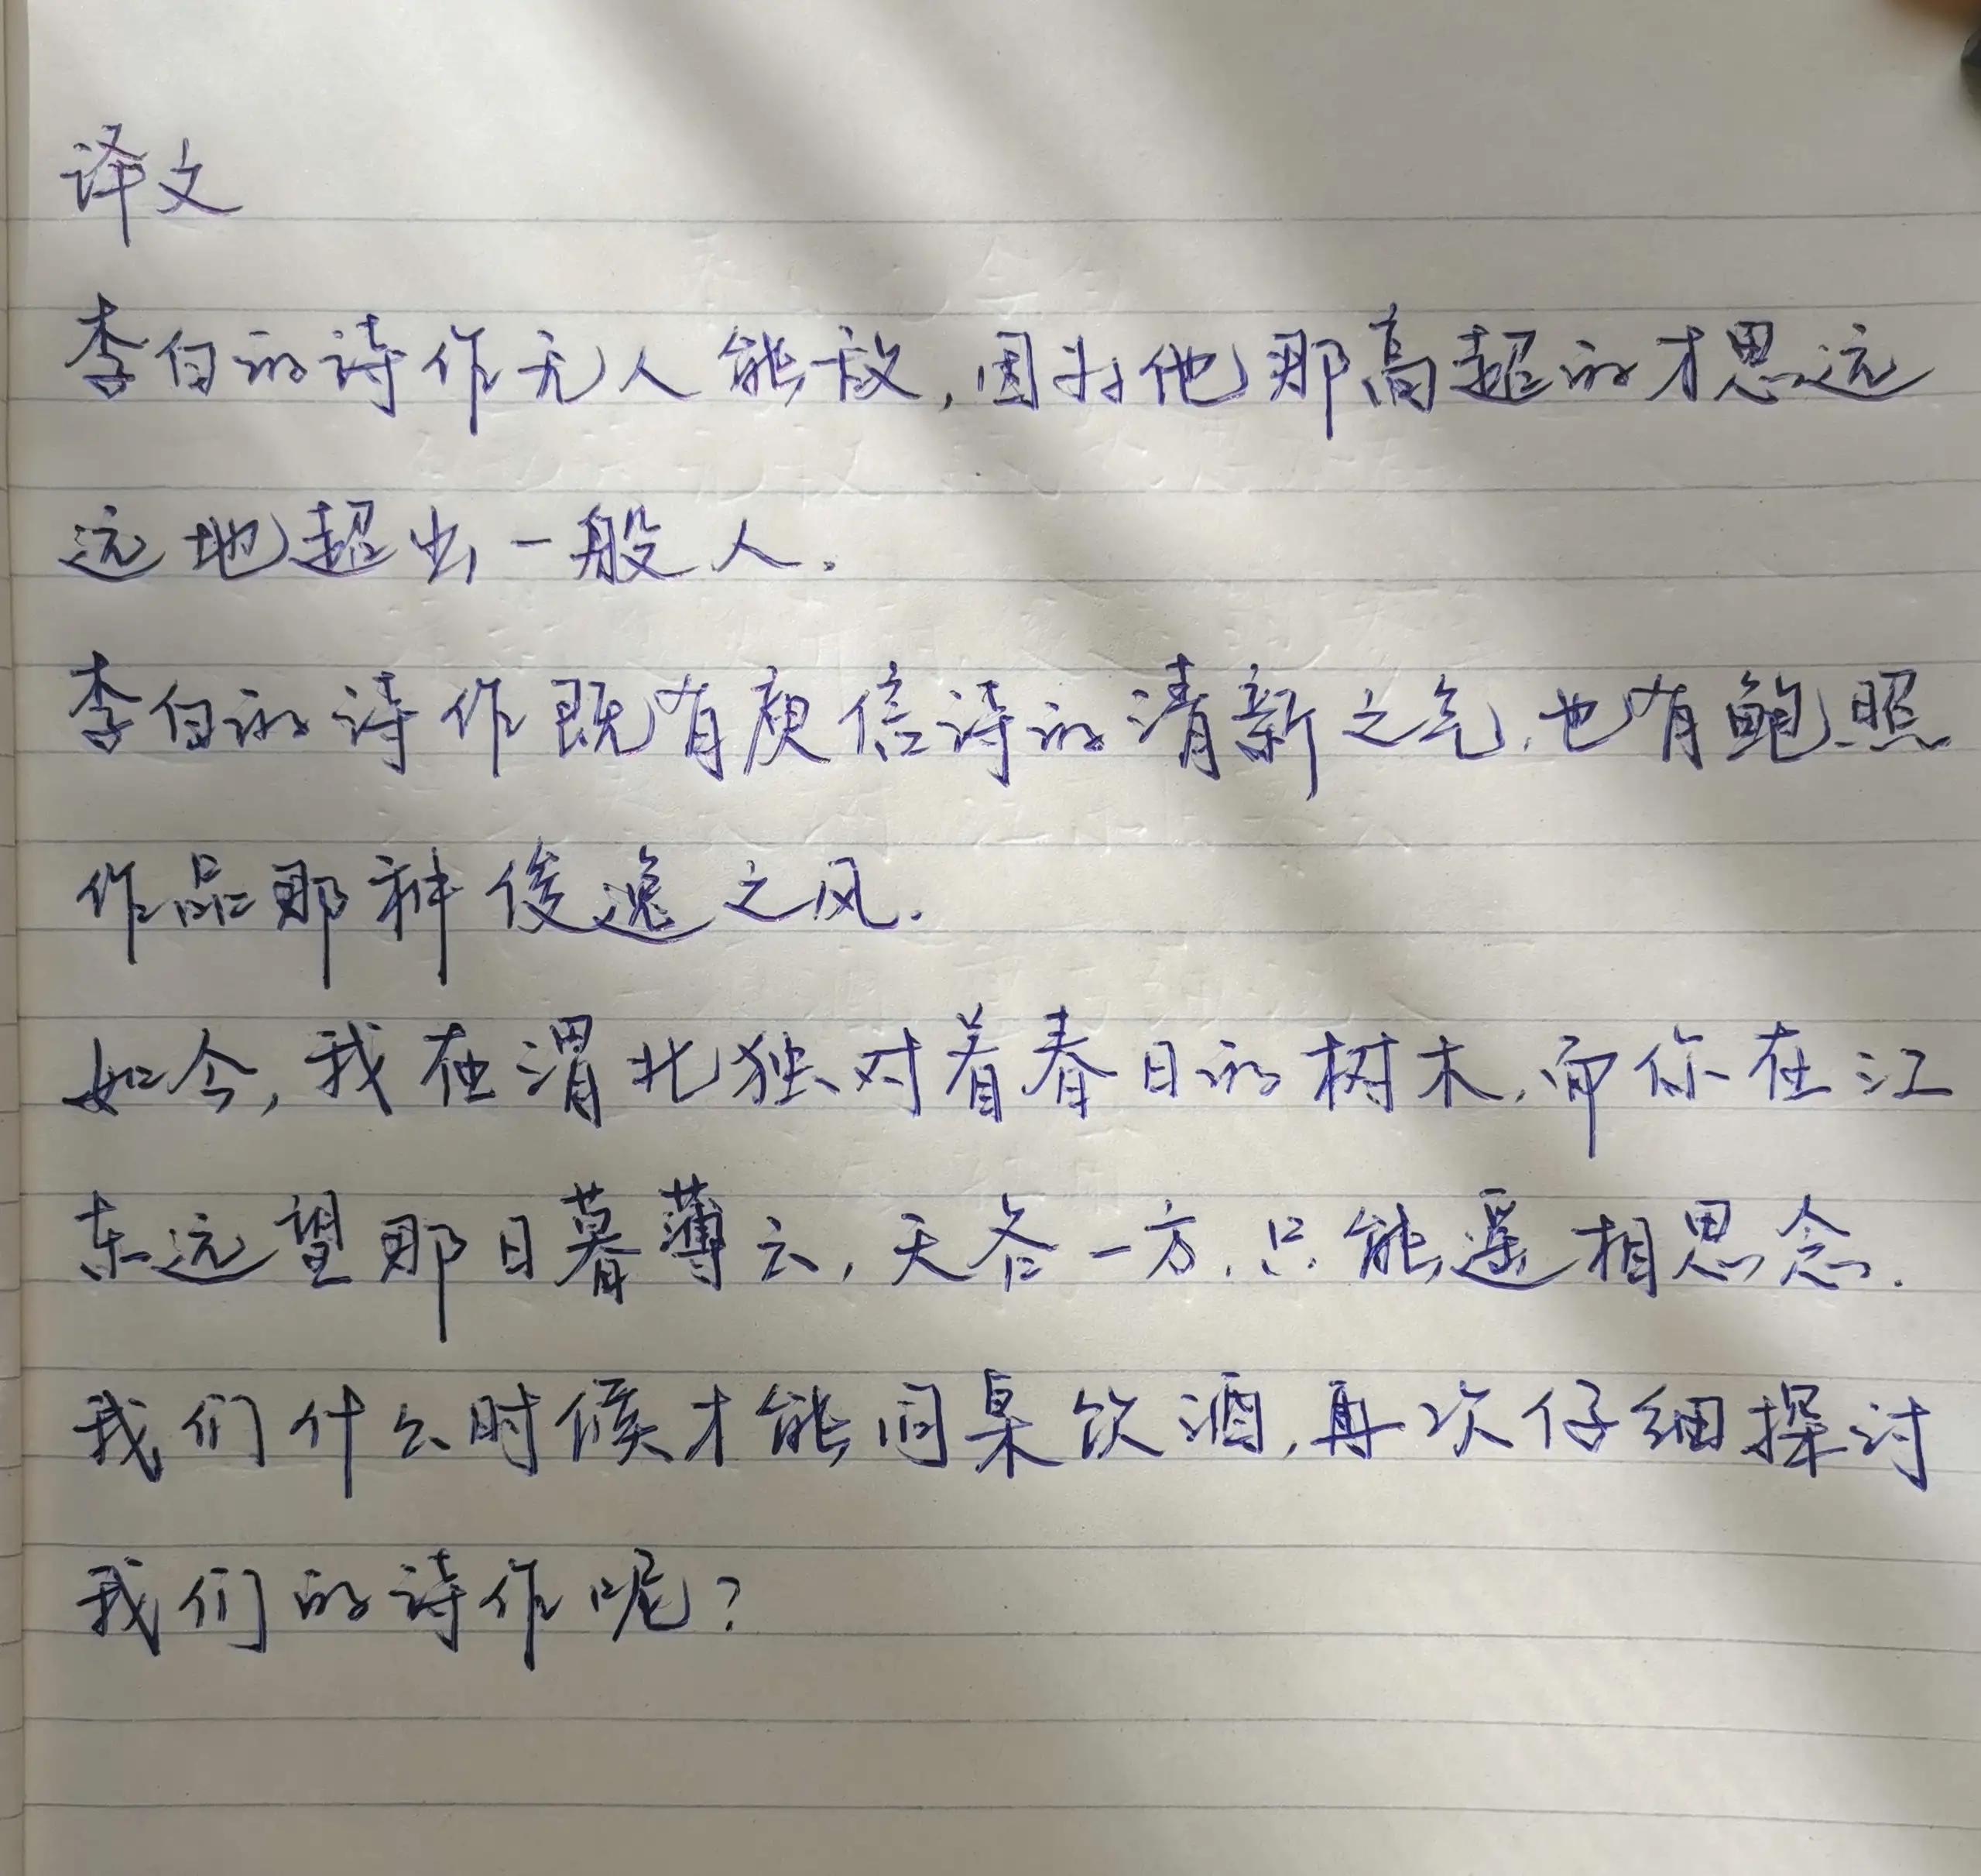 译文
李白的诗作无人能敌,因为他那高超的才思远
远地超出一般人.
李白的诗作既有庾信诗的清新之气,也有鲍照
作品那种俊逸之风.
如今,我在渭北独对着春日的树木,而你在江
东远望那日暮薄云,天各一方,只能遥相思念.
我们什么时候才能同桌饮酒,再次仔细探讨
我们的诗作呢?